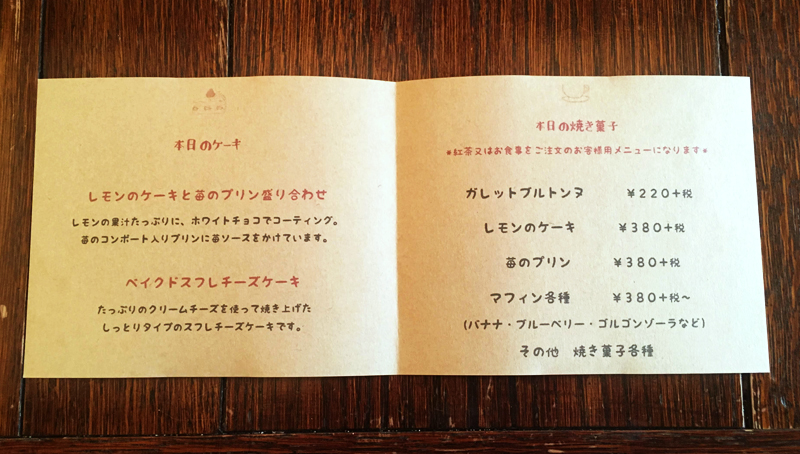 本日のケーキ
レモンのケーキと苺のプリン盛り合わせ
レモンの果汁たっぷりに、ホワイトチョコでコーティング。
苺のコンポート入りプリンに苺ソースをかけています。
ベイクドスフレチーズケーキ
たっぷりのクリームチーズを使って焼き上げた
しっとりタイプのスフレチーズケーキです。
本日の焼き菓子
*紅茶又はお食事をご注文のお客様用メニューになります*
ガレットブルトンヌ ￥220+税
レモンのケーキ ￥380+税
苺のプリン ￥380+税
マフィン各種 ￥380+税～
(バナナ・ブルーベリー・ゴルゴンゾーラなど)
その他 焼き菓子各種